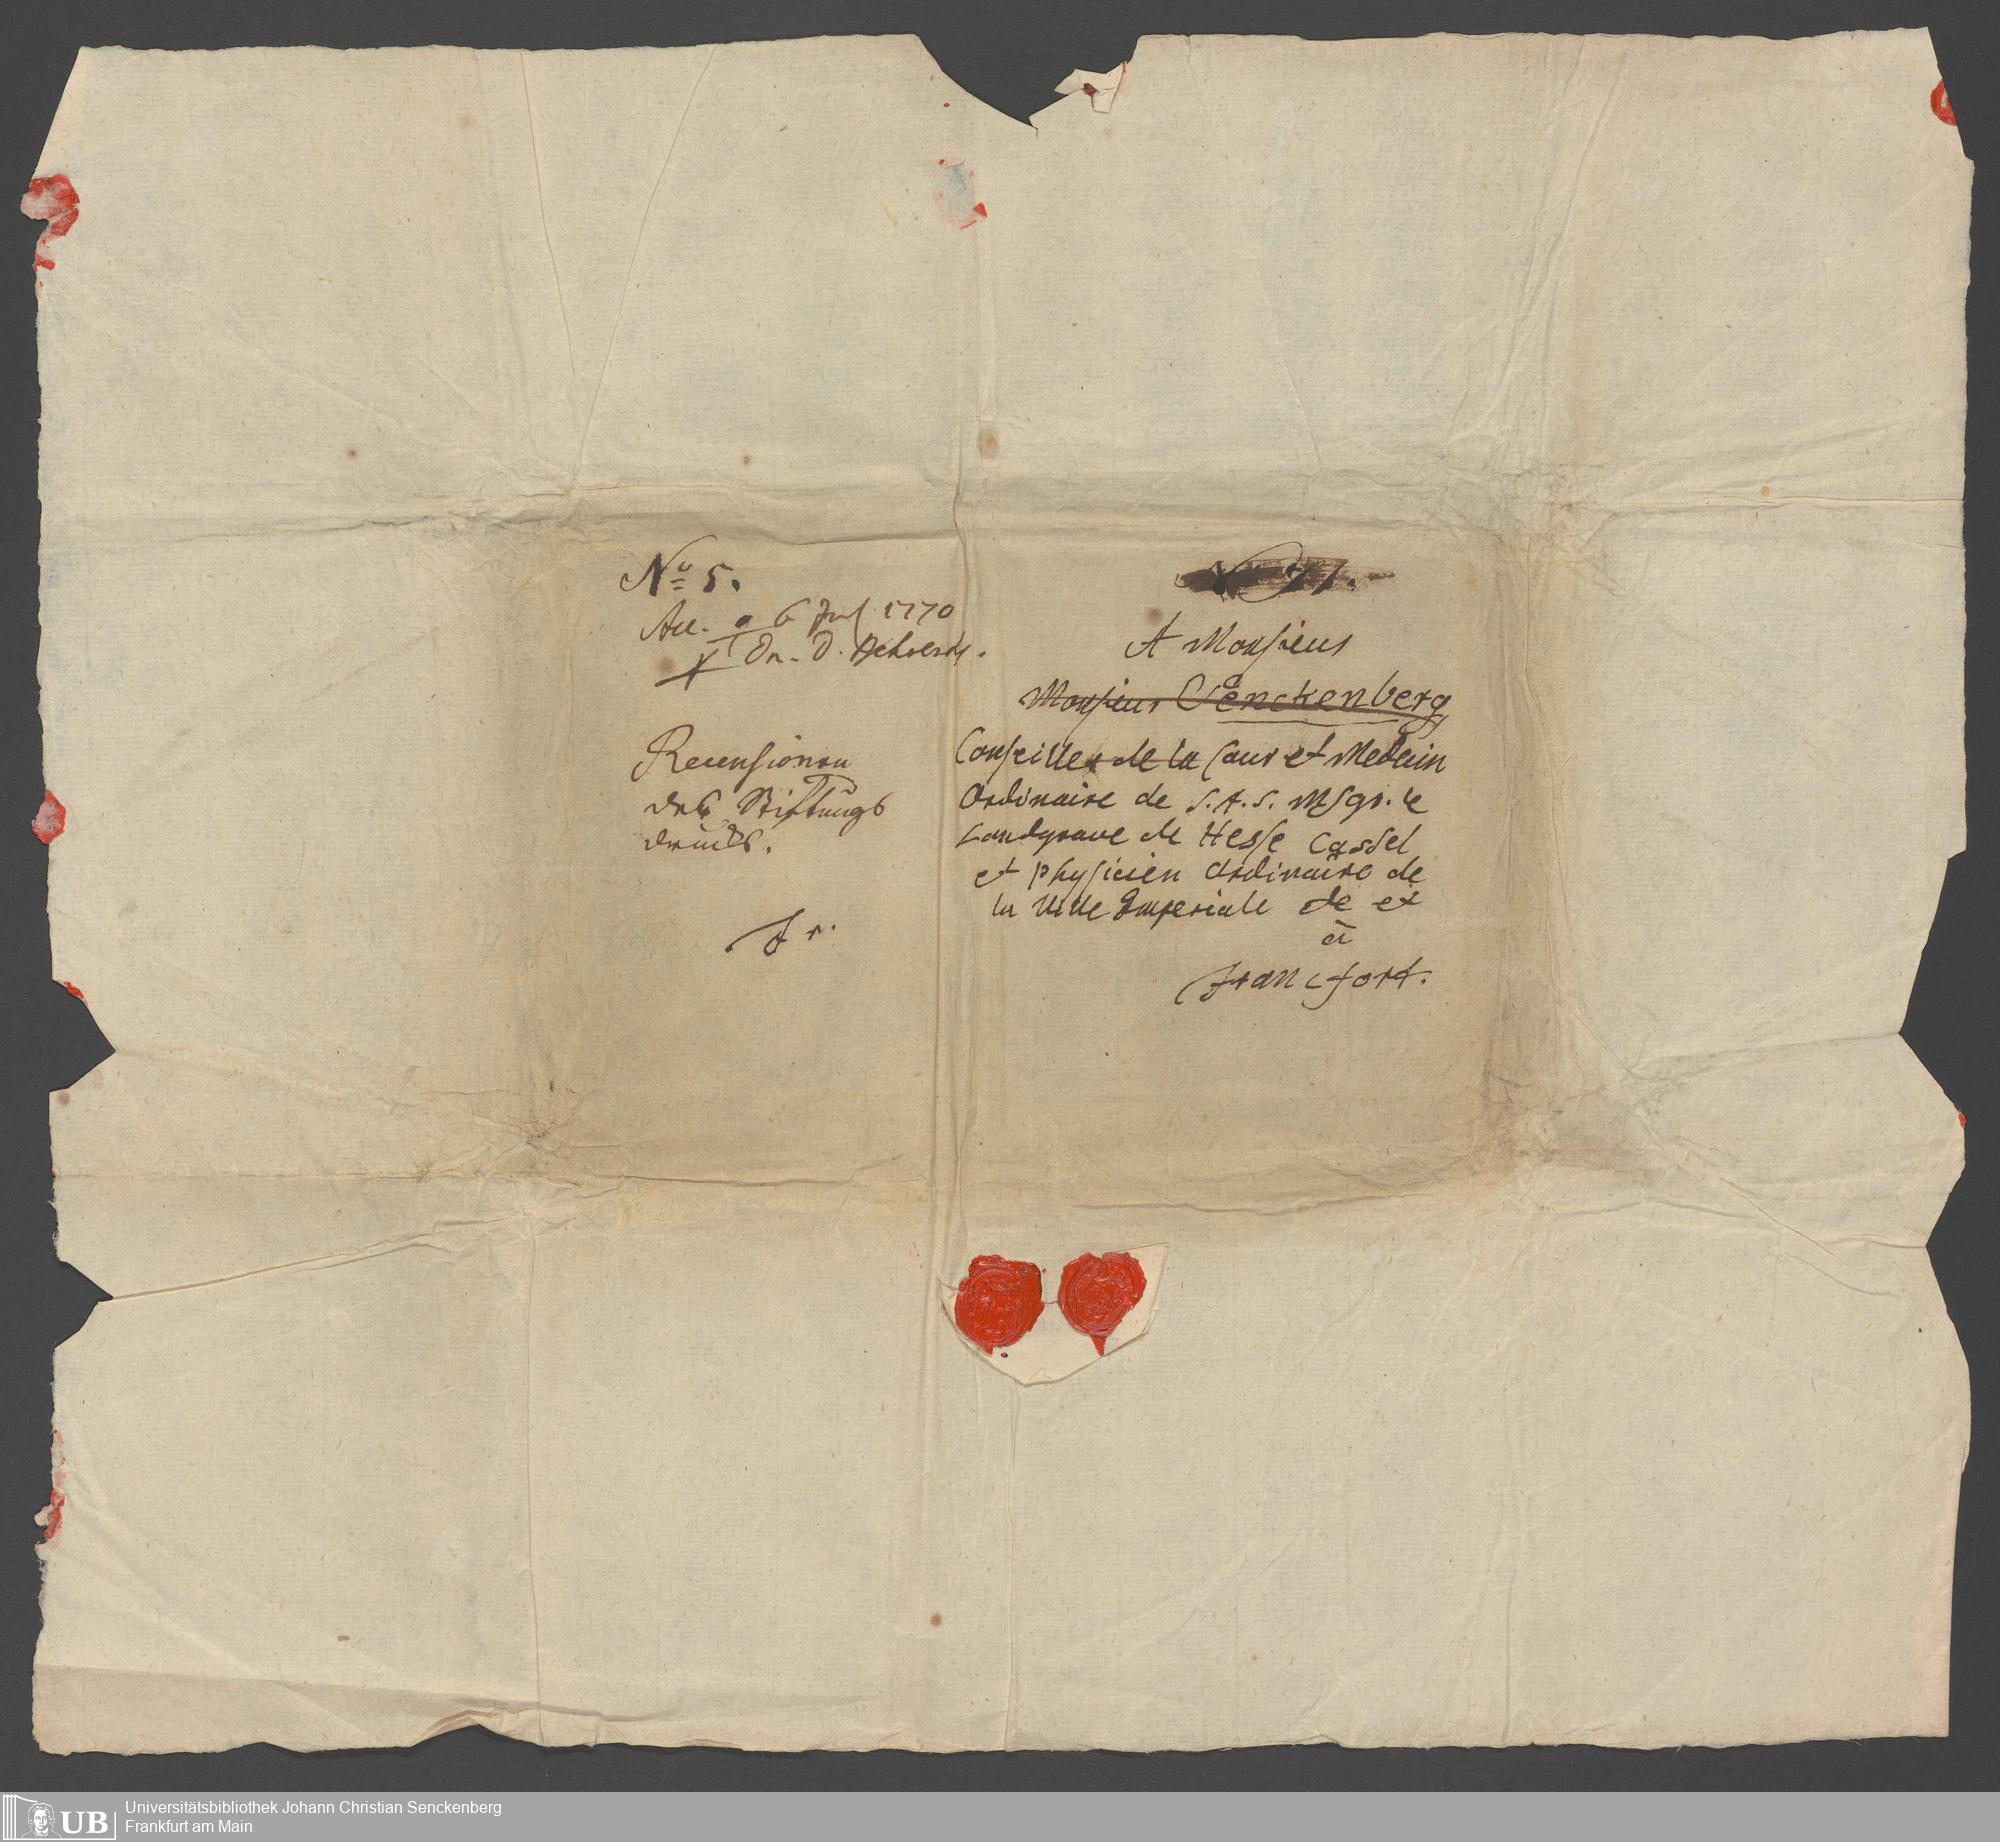 No 5.
Acc. a 6 Jul 1770
Dn. D.
Recensionen
des Stiftungs
drucks.
fr.
No 71.
A Monsieur
Monsieur Senckenberg
Conseiller de la Cour et Medecin
Ordinaire de S.A.S. Msgr. le
Landgrave de Hesse Cassel
et physicien ordinaire de
la Ville Imperiale de et
à
francfort.
UB
Universitätsbibliothek Johann Christian Senckenberg
Frankfurt am Main